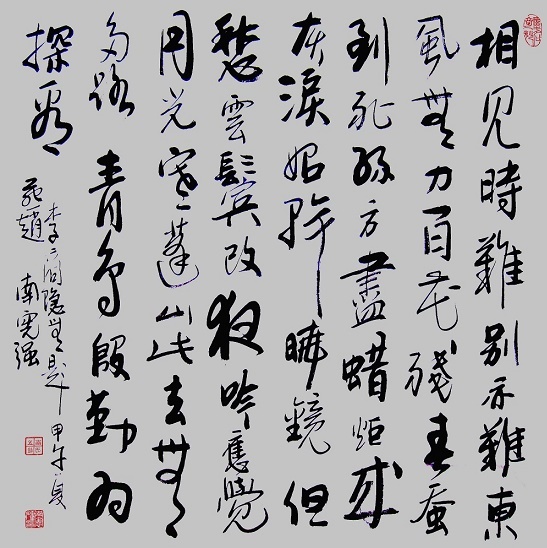 相見時難別亦難東
風無力百花殘春蚕
到死絲方盡蜡炬成
灰淚始乾曉鏡但
愁雲鬢改夜吟應覺
月光寒蓬山此去無
多路青鳥殷勤為
探看
李商隐無題 甲午夏
趙南憲强